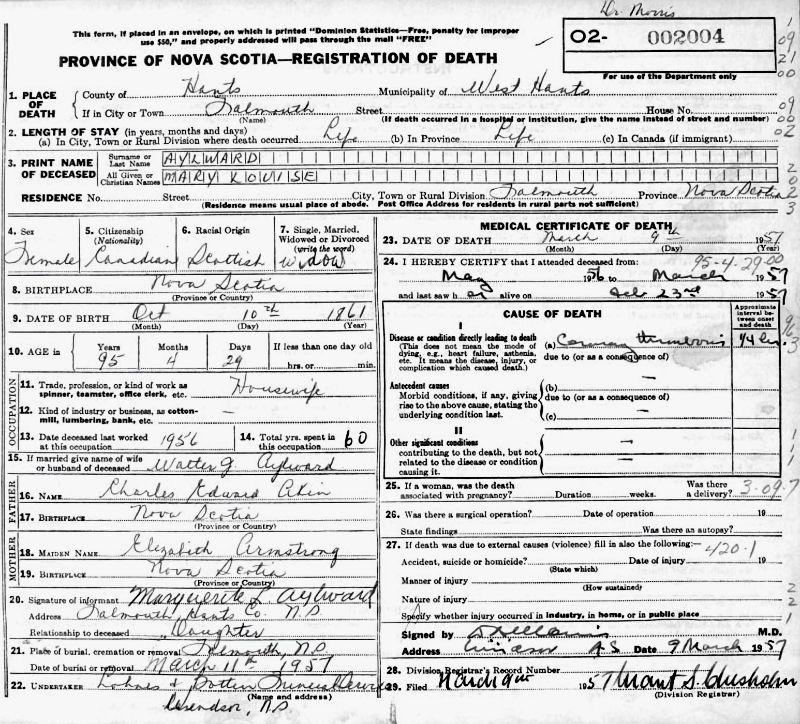 Dr. Morris
This form, if placed in an envelope, on which is printed "Dominion Statistics—Free, penalty for improper
use $50," and properly addressed will pass through the mail "FREE"
O2- 002004
For use of the Department only
PROVINCE OF NOVA SCOTIA—REGISTRATION OF DEATH
1. PLACE OF DEATH County of Hants Municipality of West Hants
If in City or Town Falmouth Street House No.
(Name) (If death occurred in a hospital or institution, give the name instead of street and number)
2. LENGTH OF STAY (in years, months and days)
(a) In City, Town or Rural Division where death occurred Life (b) In Province Life (c) In Canada (if immigrant)
3. PRINT NAME OF DECEASED Surname or Last Name AYLWARD
All Given or Christian Names MARY LOUISE
RESIDENCE No. Street City, Town or Rural Division Falmouth Province Nova Scotia
(Residence means usual place of abode. Post Office Address for residents in rural parts not sufficient)
4. Sex Female
5. Citizenship (Nationality) Canadian
6. Racial Origin Scottish
7. Single, Married, Widowed or Divorced (write the word) Widow
8. BIRTHPLACE Nova Scotia
(Province or Country)
9. DATE OF BIRTH Oct 10th 1861
(Month) (Day) (Year)
10. AGE in Years 95 Months 4 Days 29 If less than one day old
hrs. or min.
OCCUPATION
11. Trade, profession, or kind of work as
spinner, teamster, office clerk, etc. Housewife
12. Kind of industry or business, as cotton-
mill, lumbering, bank, etc. —
13. Date deceased last worked
at this occupation 1956
14. Total yrs. spent in
this occupation 60
15. If married give name of wife
or husband of deceased Walter G. Aylward
FATHER
16. NAME Charles Edward Akin
17. BIRTHPLACE Nova Scotia
(Province or Country)
MOTHER
18. MAIDEN NAME Elizabeth Armstrong
19. BIRTHPLACE Nova Scotia
(Province or Country)
20. Signature of informant Marguerite L. Aylward
Address Falmouth, Hants Co. N.S.
Relationship to deceased Daughter
21. Place of burial, cremation or removal Falmouth, N.S.
Date of burial or removal March 11th 1957
22. UNDERTAKER Funeral Service
(Name and address)
Windsor, N.S.
MEDICAL CERTIFICATE OF DEATH
23. DATE OF DEATH March 9th 1957
(Month) (Day) (Year)
24. I HEREBY CERTIFY that I attended deceased from: 95-4-29.00
May 1956 to March 1957
and last saw h er alive on Feb 23rd 1957
CAUSE OF DEATH
Approximate interval between onset and death
I
Disease or condition directly leading to death
(This does not mean the mode of
dying, e.g., heart failure, asthenia,
etc. It means the disease, injury, or
complication which caused death.)
(a) Coronary thrombosis 1/4 hr.
due to (or as a consequence of)
Antecedent causes
Morbid conditions, if any, giving
rise to the above cause, stating the
underlying condition last.
(b) —
due to (or as a consequence of)
(c) —
II
Other significant conditions
contributing to the death, but not
related to the disease or condition
causing it.
25. If a woman, was the death
associated with pregnancy? Duration weeks. Was there
a delivery? 3-09.7
26. Was there a surgical operation? Date of operation 19
State findings Was there an autopsy?
27. If death was due to external causes (violence) fill in also the following:— 420.1
Accident, suicide or homicide? Date of injury 19
(State which)
Manner of injury
(How sustained)
Nature of injury
Specify whether injury occurred in industry, in home, or in public place
Signed by M.D.
Address Windsor N.S. Date 9 March 1957
28. Division Registrar's Record Number
29. Filed March 9th 1957 Chisholm
(Division Registrar)